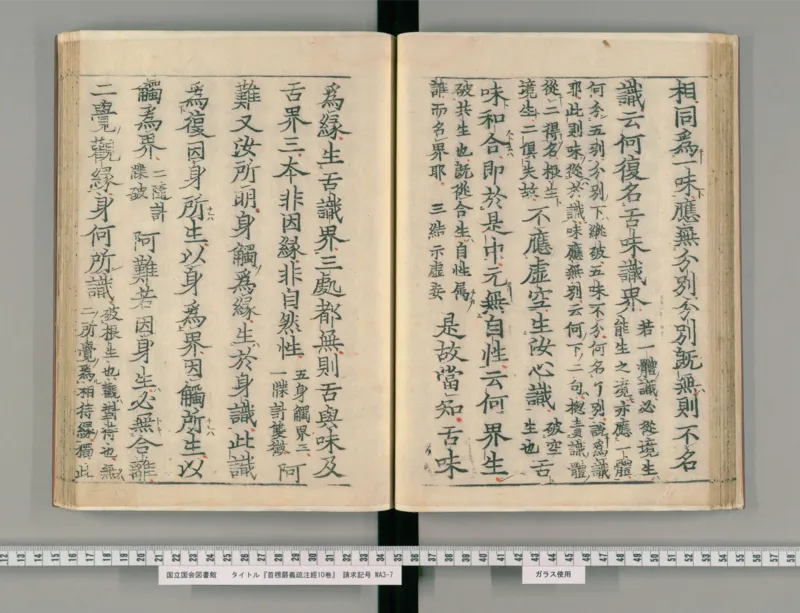 相同爲一味應無分別分別既無則不名
識云何復名舌味識界
若一體識必從境生
能生之境亦應一體
何今五別分別下縱破五味不分何名了別說爲識
耶此則味從於識味應無別云何下二句揔責識體
從二得名根生二
境生二俱失故
不應虛空生汝心識
破空
生也
舌
味和合即於是中元無自性云何界生
破共生也既從合生自性屬
誰而名界耶 三結示虛妄
是故當知舌味
爲緣生舌識界三處都無則舌與味及
舌界三本非因緣非自然性
五身觸界三
一牒計雙徵
阿
難又汝所明身觸爲緣生於身識此識
爲復因身所生以身爲界因觸所生以
觸爲界
二隨計
牒破
阿難若因身生必無合離
二覺觀緣身何所識
破根生也觀對待也無
二所覺爲相待緣獨此
国立国会図書館 タイトル『首楞嚴義疏注經10巻』 請求記号 WA3-7
ガラス使用